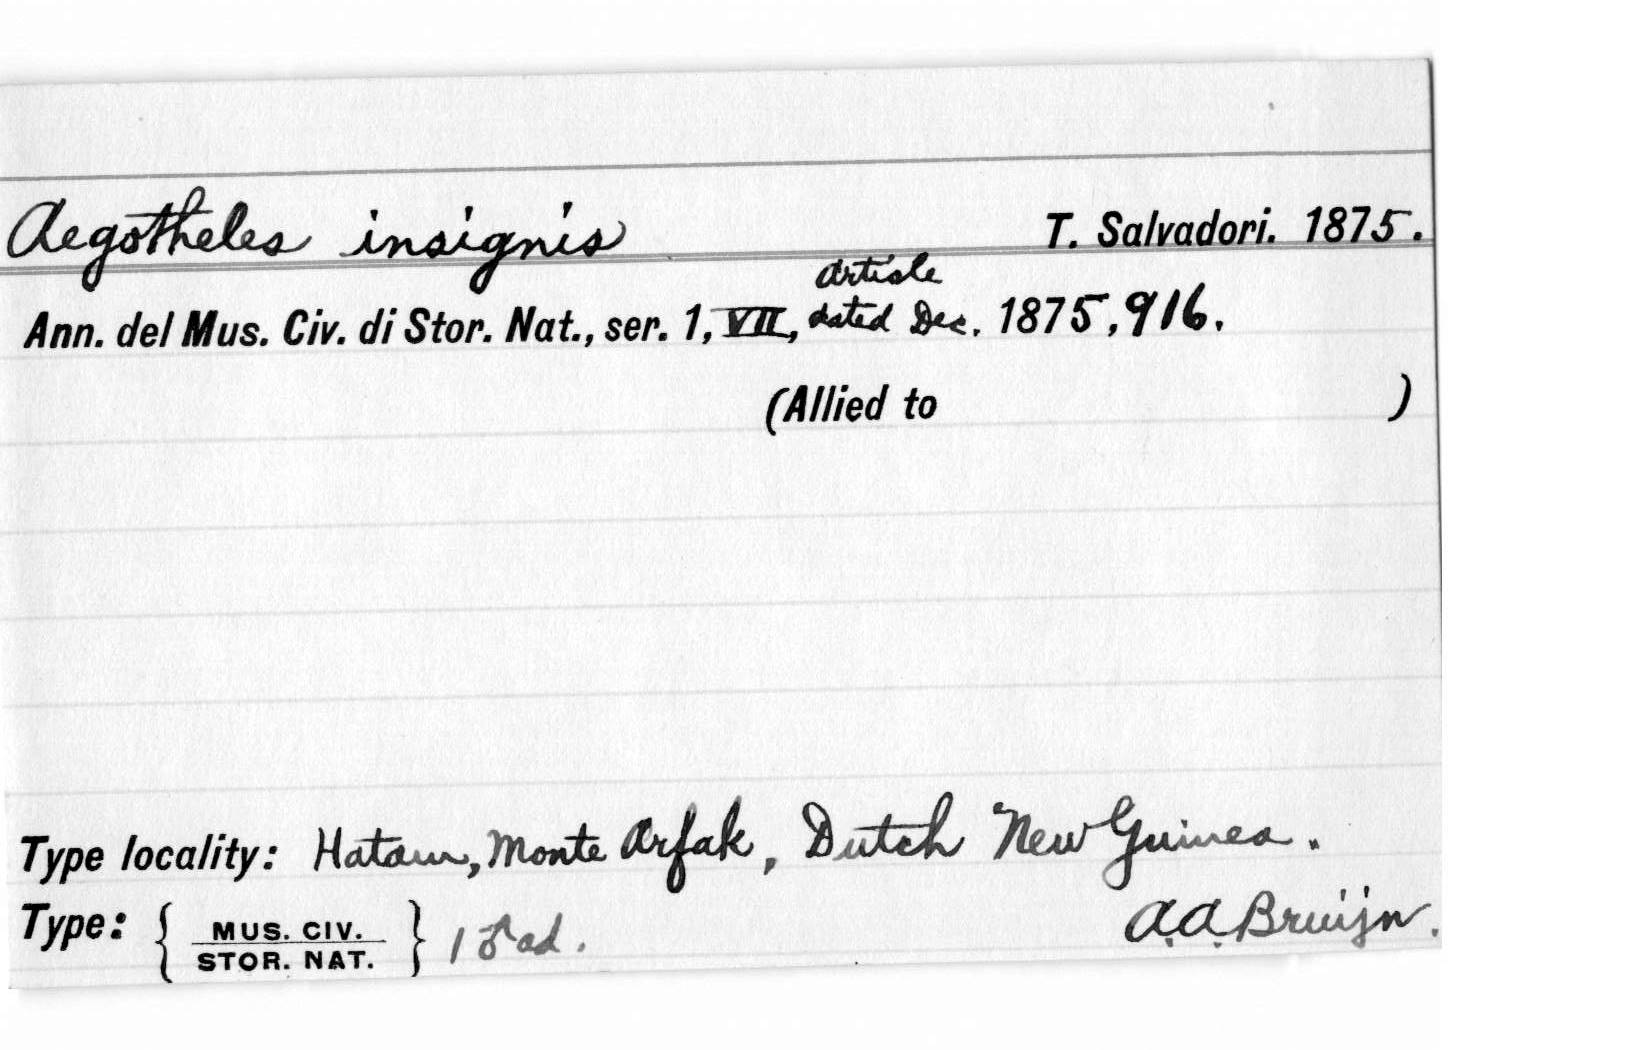 Aegotheles insignis T. Salvadori. 1875.
article
Ann. del Mus. Civ. di Stor. Nat., ser. 1, VII, dated Dec. 1875, 916.
(Allied to )
Type locality: Hatam, Monte Arfak, Dutch New Guinea.
Type: { MUS. CIV. STOR. NAT. } 1 ♂ ad. A.A. Bruijn.